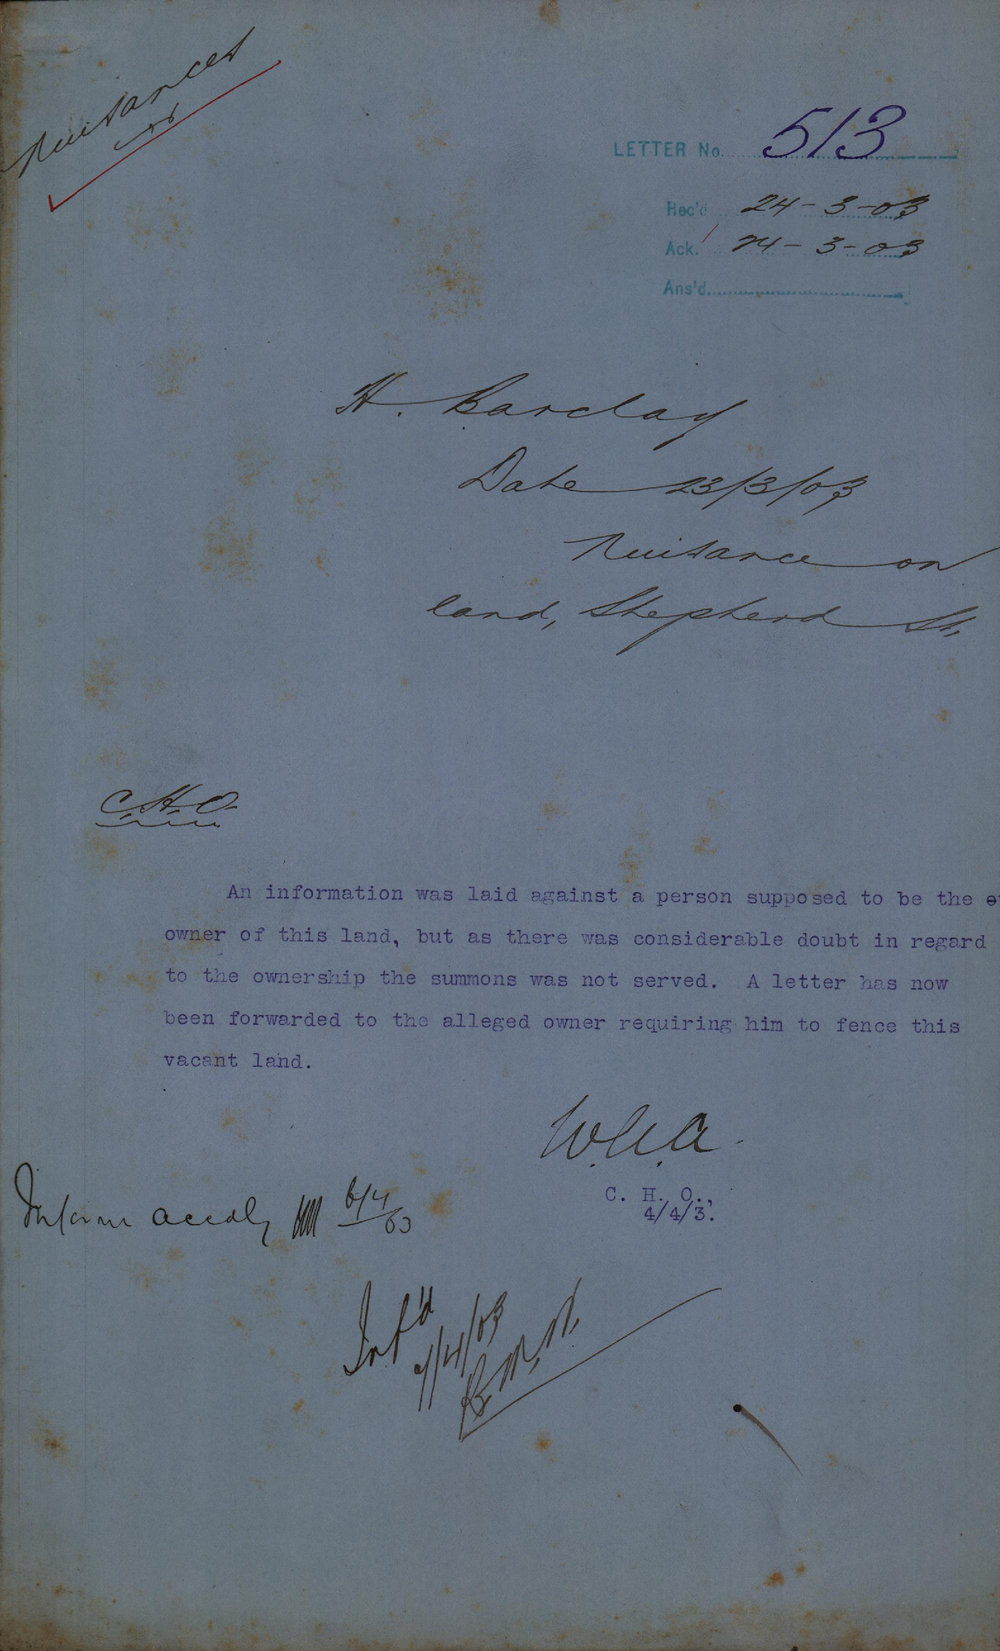 Nuisances
LETTER No. 513
Rec'd 24-3-03
Ack. 24-3-03
Ans'd
H. Barclay
Date 23/3/03
Nuisance on
land, Shepherd St.
C.H.O.
An information was laid against a person supposed to be the
owner of this land, but as there was considerable doubt in regard
to the ownership the summons was not served. A letter has now
been forwarded to the alleged owner requiring him to fence this
vacant land.
W.G.A.
C. H. O.,
4/4/3.
Inform accdly 6/4/03
Inf'd
7/4/03